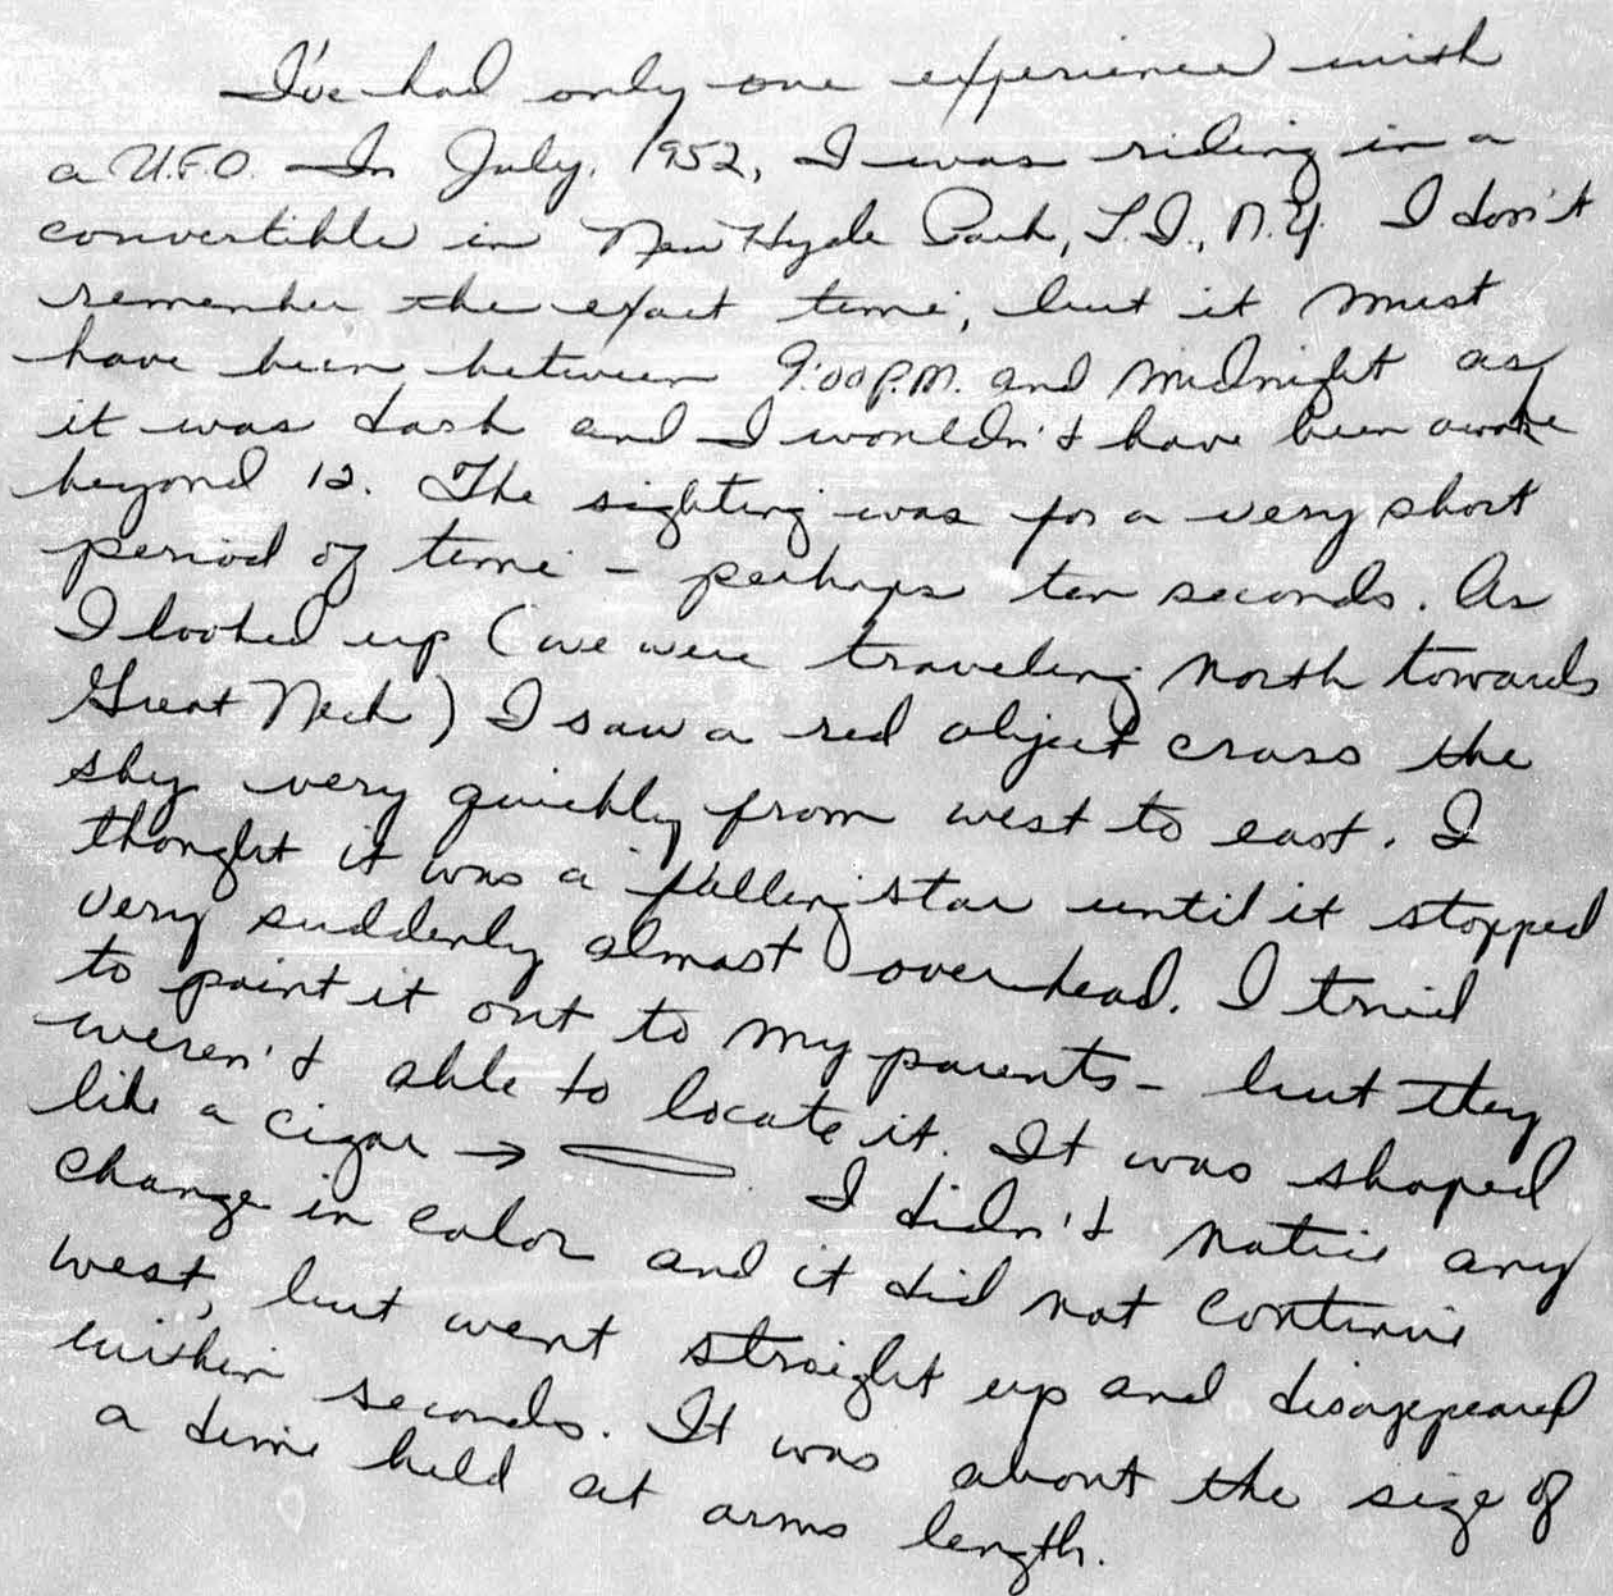 I've had only one experience with
a U.F.O. In July, 1952, I was riding in a
convertible in New Hyde Park, L.I., N.Y. I don't
remember the exact time, but it must
have been between 9:00 P.M. and midnight as
it was dark and I wouldn't have been awake
beyond 12. The sighting was for a very short
period of time - perhaps ten seconds. As
I looked up (we were traveling north towards
Great Neck) I saw a red object cross the
sky very quickly from west to east. I
thought it was a falling star until it stopped
very suddenly almost overhead. I tried
to point it out to my parents - but they
weren't able to locate it. It was shaped
like a cigar → . I didn't notice any
change in color and it did not continue
west, but went straight up and disappeared
within seconds. It was about the size of
a dime held at arms length.